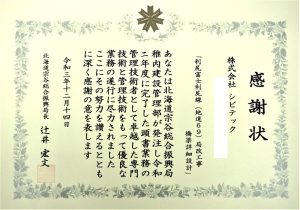 感謝状
株式会社 シビテック
「利尻富士利尻線(地道69)局改工事
橋梁詳細設計」
あなたは北海道宗谷総合振興局
稚内建設管理部が発注し令和
二年度に完了した頭書業務の
管理技術者として卓越した専門
技術と管理技術をもって優良な
業務の遂行に尽力されました
ここにその努力を讃えるととも
に深く感謝の意を表します
令和三年十二月十四日
北海道宗谷総合振興局長
辻井 宏文